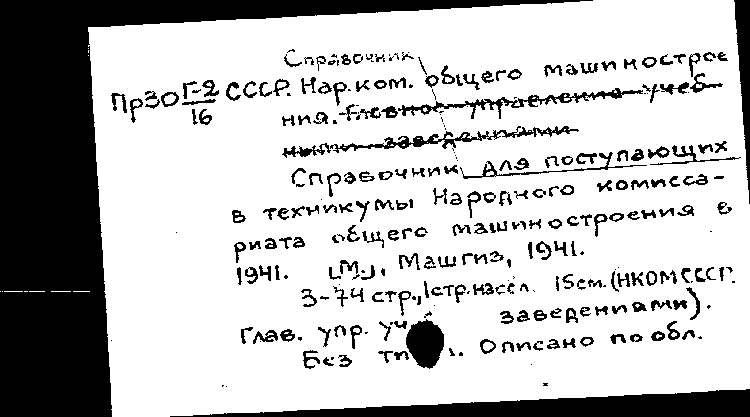 Справочник
ПрЗО Г-2/16 СССР. Нар.ком. общего машинострое
ния. Главное управление учеб
ными заведениями
Справочник для поступающих
в техникумы Народного комисса-
риата общего машиностроения в
1941. [М.], Машгиз, 1941.
3-74 стр., 1 стр. насел. 15 см. (НКОМ СССР.
Глав. упр. уч заведениями).
Без ти . Описано по обл.